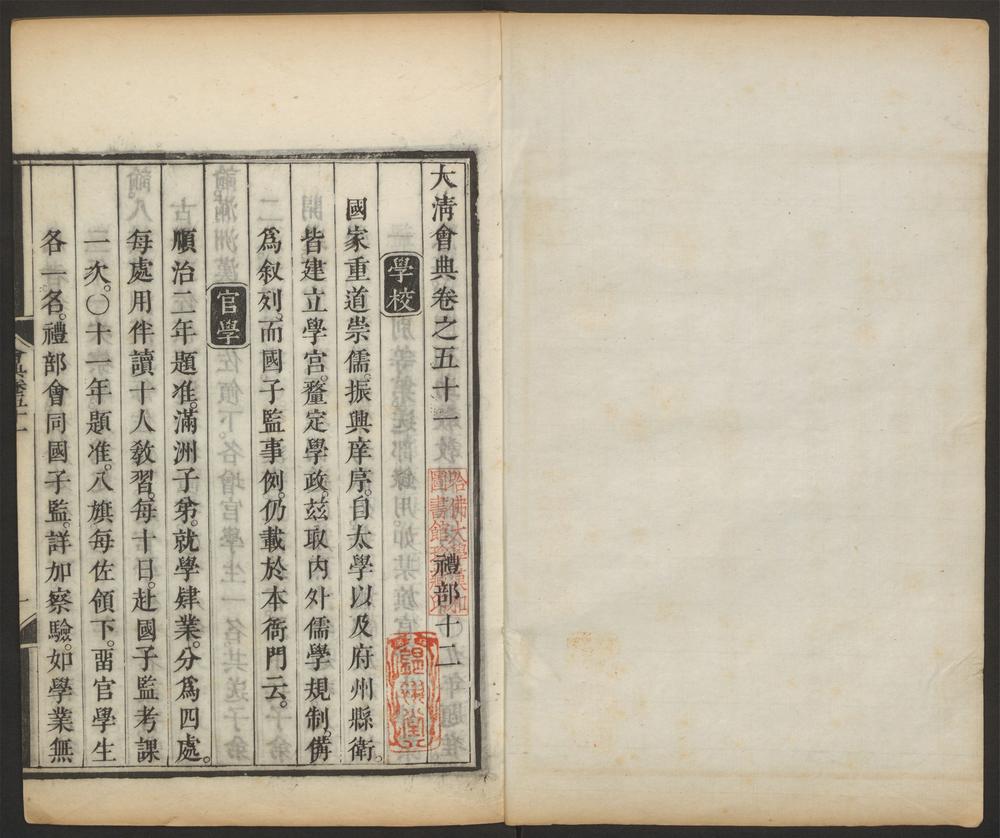 大淸會典卷之五十一
禮部十二
學校
國家重道崇儒。振興庠序。自太學以及府州縣衞。
皆建立學宮。釐定學政。玆取內外儒學規制。備
爲叙列。而國子監事例。仍載於本衙門云。
官學
順治二年題准。滿洲子弟。就學肄業。分爲四處。
每處用伴讀十人教習。每十日。赴國子監考課
一次。〇十一年題准。八旗每佐領下。畱官學生
各一名。禮部會同國子監。詳加察驗。如學業無
哈佛大學漢和
圖書館珍藏印